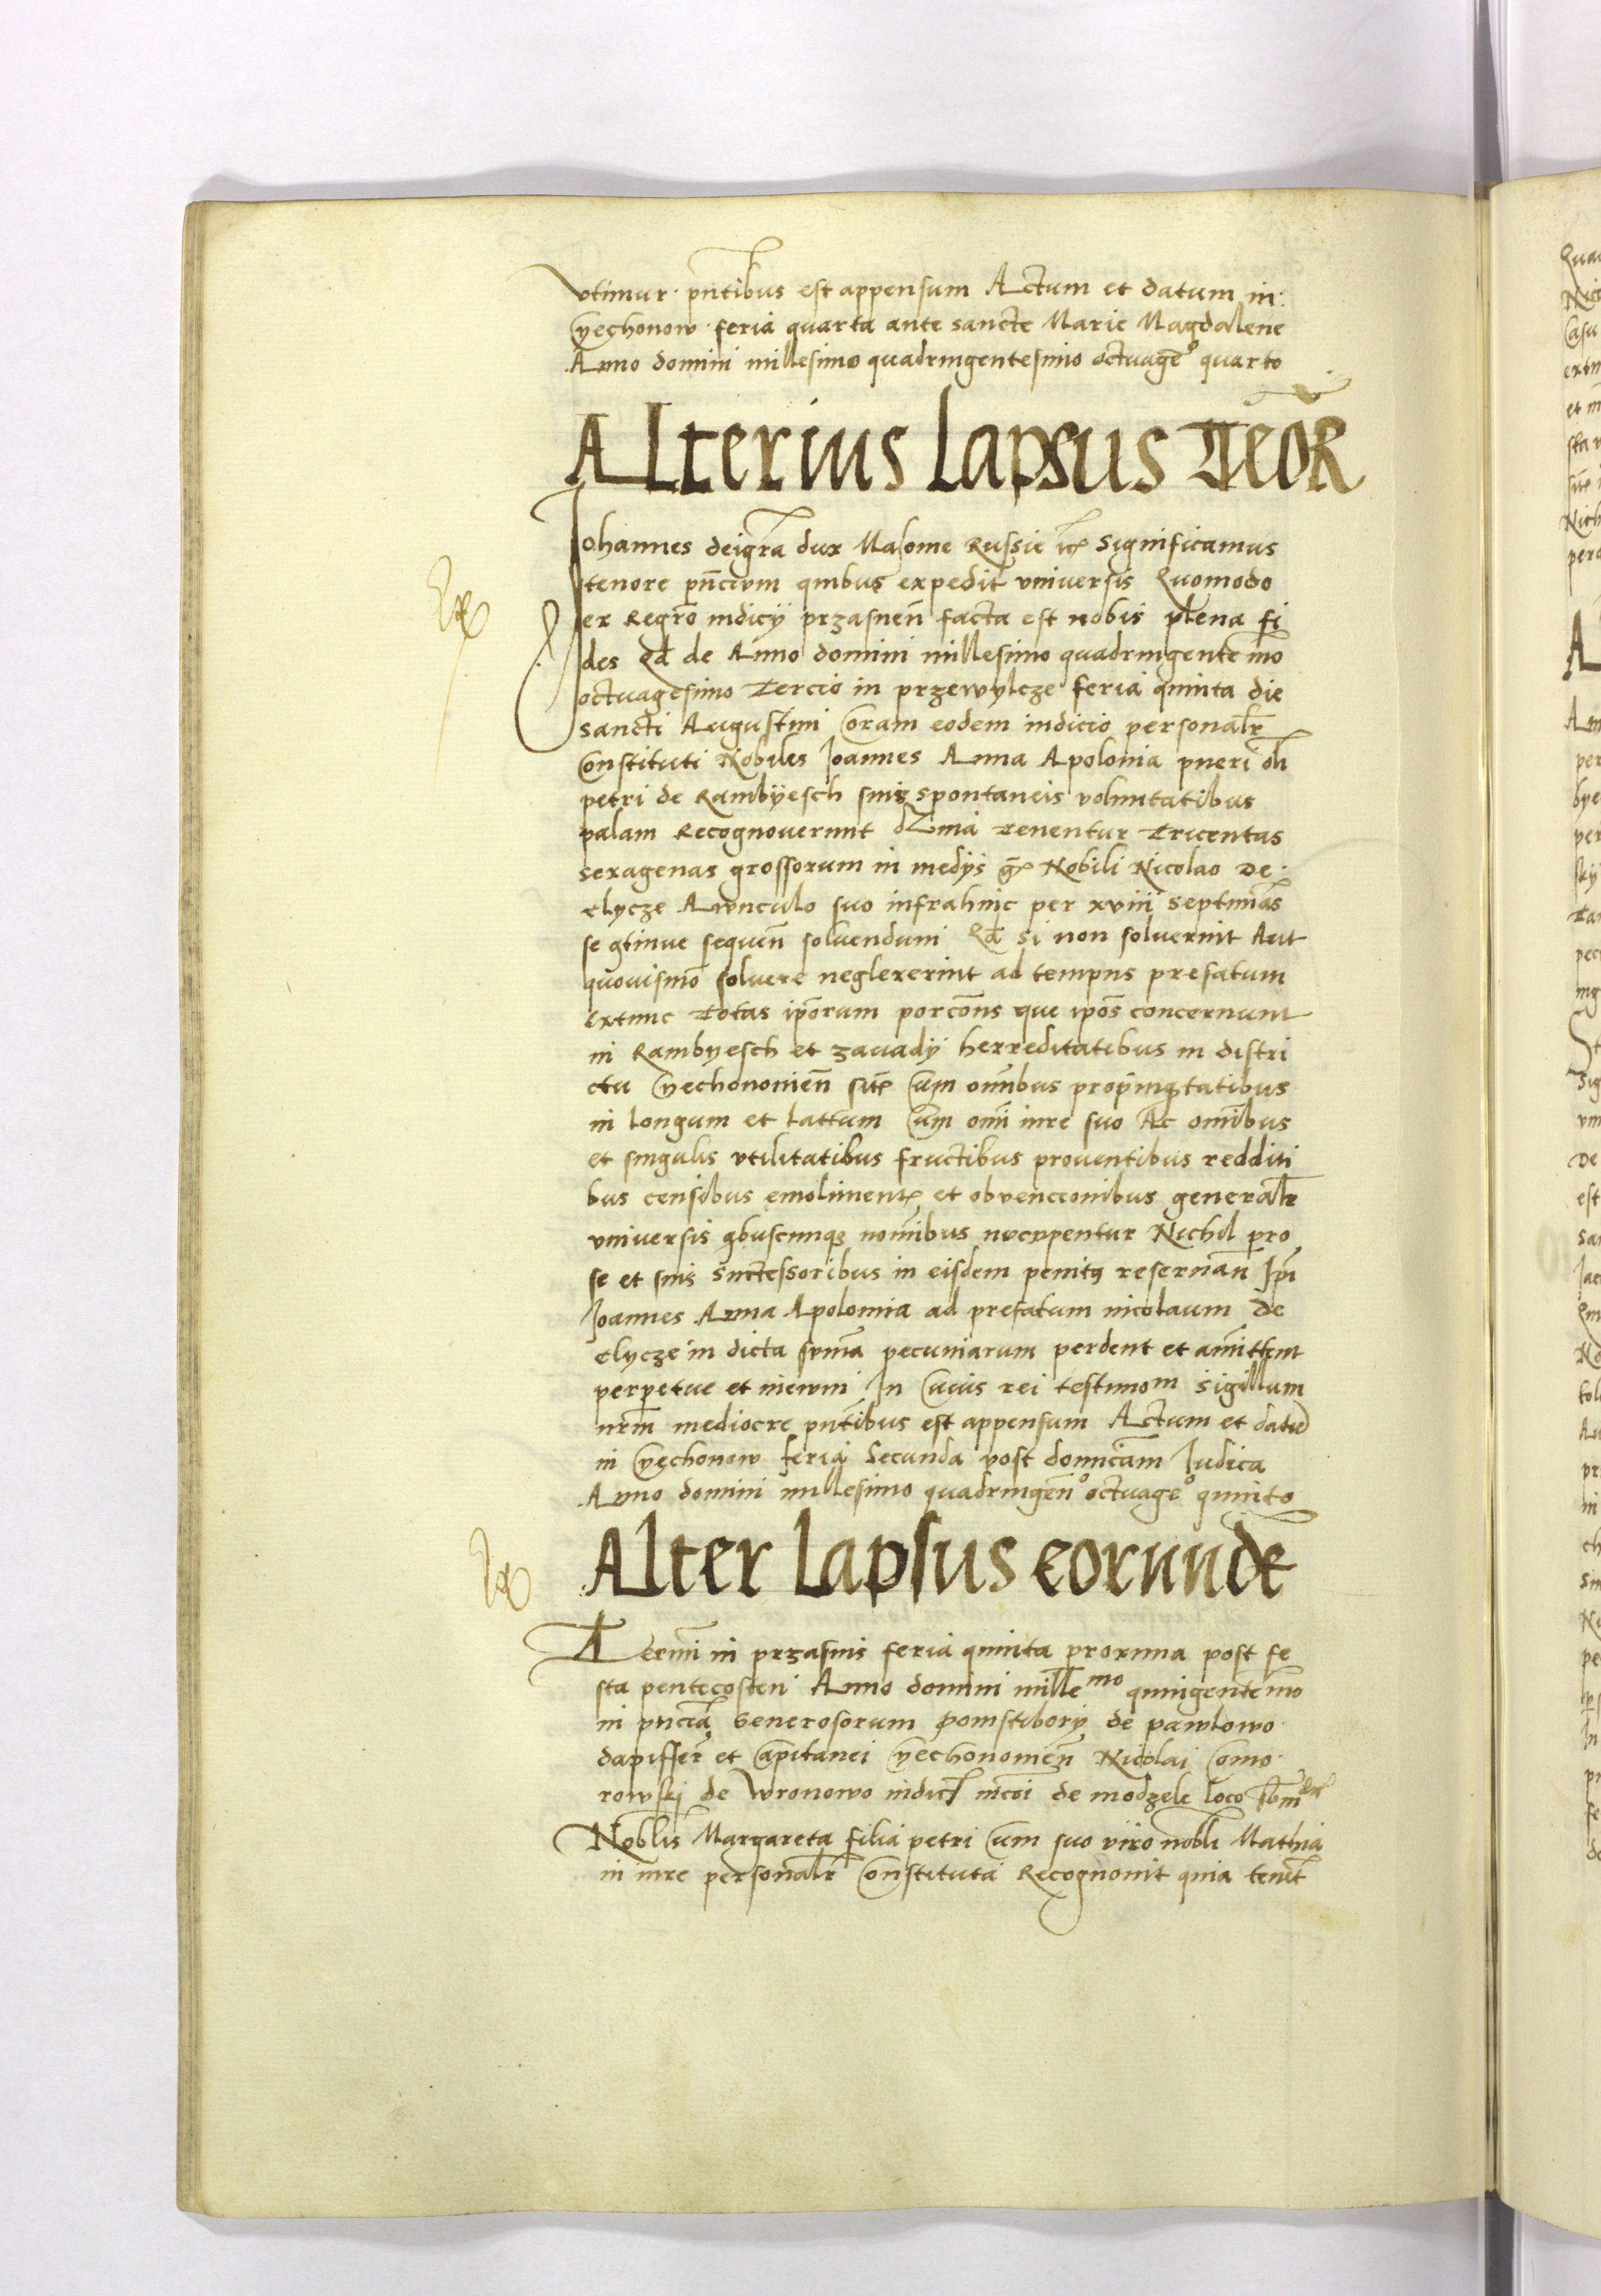 vtimur pñtibus est appensum Actum et datum in
Cyechonow feria quarta ante sancte Marie Magdalene
Anno domini millesimo quadringentesimo octuage° quarto
Alterius Lapsus Teor
Johannes deigra dux Masouie Russie Significamus
tenore pñcium quibus expedit vniversis Quomodo
ex Regro iudicij przasnen facta est nobis plena fi
des qd de Anno domini millesimo quadringentemo
octuagesimo Tercio in przewylcze feria quinta die
sancti Augustini Coram eodem iudicio personalr
Constituti Nobiles Joannes Anna Apolonia pueri olī
petri de Rambyesch suis spontaneis voluntatibus
palam Recognouerunt tenentur Tricentas
sexagenas grossorum in medijs Nobili Nicolao De
elycze Awnculo suo infrahinc per xviii septimās
se gtinue sequeñ soluendum Qd si non soluerint Aut
quouismo soluere neglexerint ad tempus prefatum
extunc Totas ip̄orum porcōns que ip̄os concernunt
in Rambyesch et zauadij herreditatibus in distri
ctu Cyechonouieñ sitꝭ Cum omnibus propīnqtatibus
in longum et Lattum Cum omī iure suo Ac omībus
et singulis vtilitatibus fructibus prouentibus redditi
bus censibus emolimentꝭ et obvencionibus generalr
vniversis qbuscunqꝫ nomībus nvcppentur Nichil pro
se et suis successoribus in eisdem penitꝰ reseruañ Ipī
Joannes Anna Apolomia ad prefatum nicolaum De
elycze in dicta sum̄a pecuniarum perdent et amittent
perpetue et in ewm In Cuius rei testimom Sigillum
nrm mediocre pñtibus est appensum Actum et datū
in Cyechonow feria Secunda post domīcam Judica
Anno domini millesimo quadringeñ° octuage° quinto
Alter Lapsus eorunde
Termī in przasnis feria quinta proxima post fe
sta pentecosten Anno domini millemo quingentemo
in pñcia Generosorum Pomstibory de pawlowo
dapiffer et Capitanei Cyechonouieñ Nicolai Como
rowskj de Wronowo iudicꝭ nicoī de modzele loco
Noblis Margareta filia petri Cum suo viro nobli Mathia
in iure personalr Constituta Recognouit quia tenet